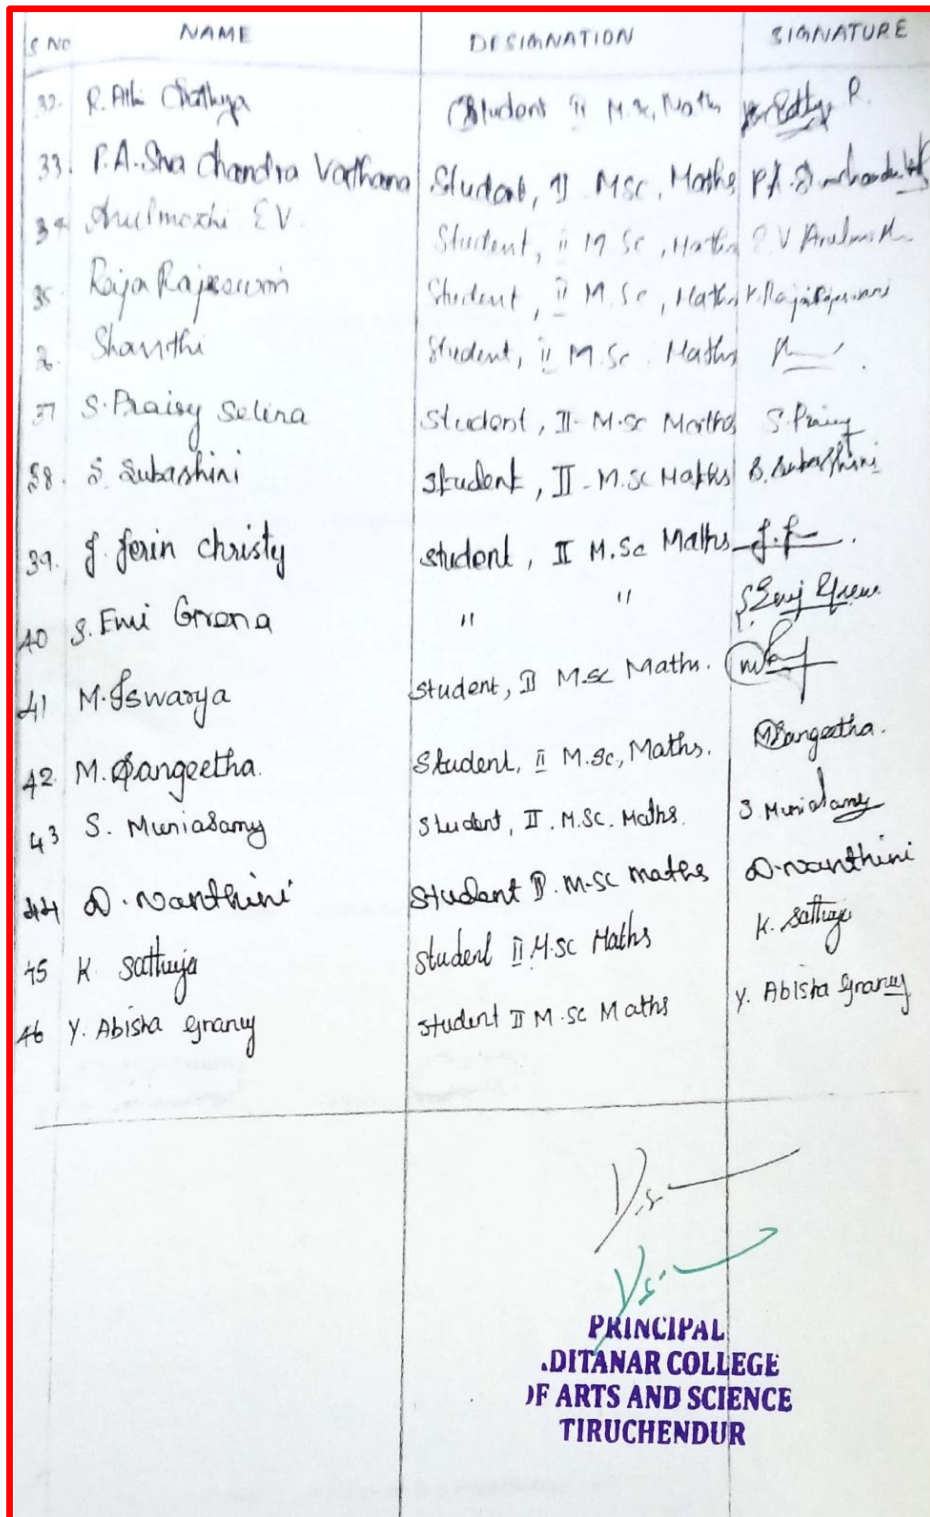 S NO NAME DESIGNATION SIGNATURE
32. R. Student II M.Sc, Maths R.
33. P.A. Siva Chandra Varthana Student, II MSC, Maths P.A.
34 Arulmozhi E.V. Student, ii M Sc, Maths E V
35 Raja Rajeswari Student, II M.Sc, Maths
Shanthi Student, ii M.Sc. Maths
37 S. Praisy Selina Student, II - M.Sc Maths S. Praisy
38. S. Subashini Student, II - M.Sc Maths S. Subashini
39. J. Jerin christy Student, II M.Sc Maths J.J
40 S. Emi Grena " "
41 M. Iswarya Student, II M.Sc Maths.
42. M. Sangeetha. Student, ii M.Sc, Maths. M Sangeetha.
43 S. Muniasamy Student, II. M.Sc. Maths. S. Muniasamy
44 D. Nanthini Student II. M.SC maths D. Nanthini
45 K Sathuja Student II M.Sc Maths K. Sathuja
46 Y. Abisha Grancy Student II M.Sc Maths Y. Abisha Grancy
PRINCIPAL
.DITANAR COLLEGE
OF ARTS AND SCIENCE
TIRUCHENDUR